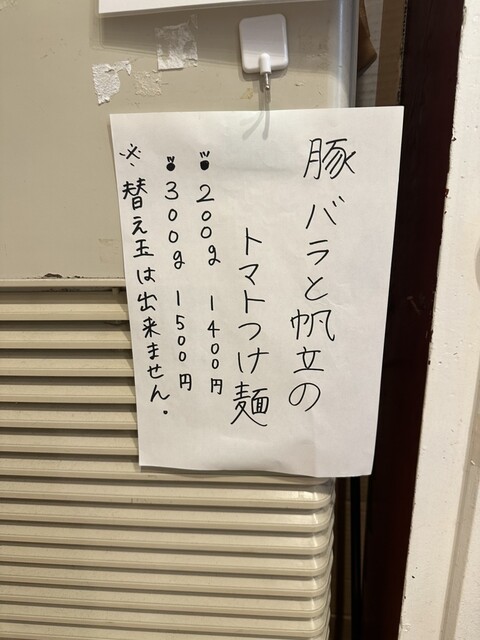 豚バラと帆立の
トマトつけ麺
200g 1400円
300g 1500円
※替え玉は出来ません。